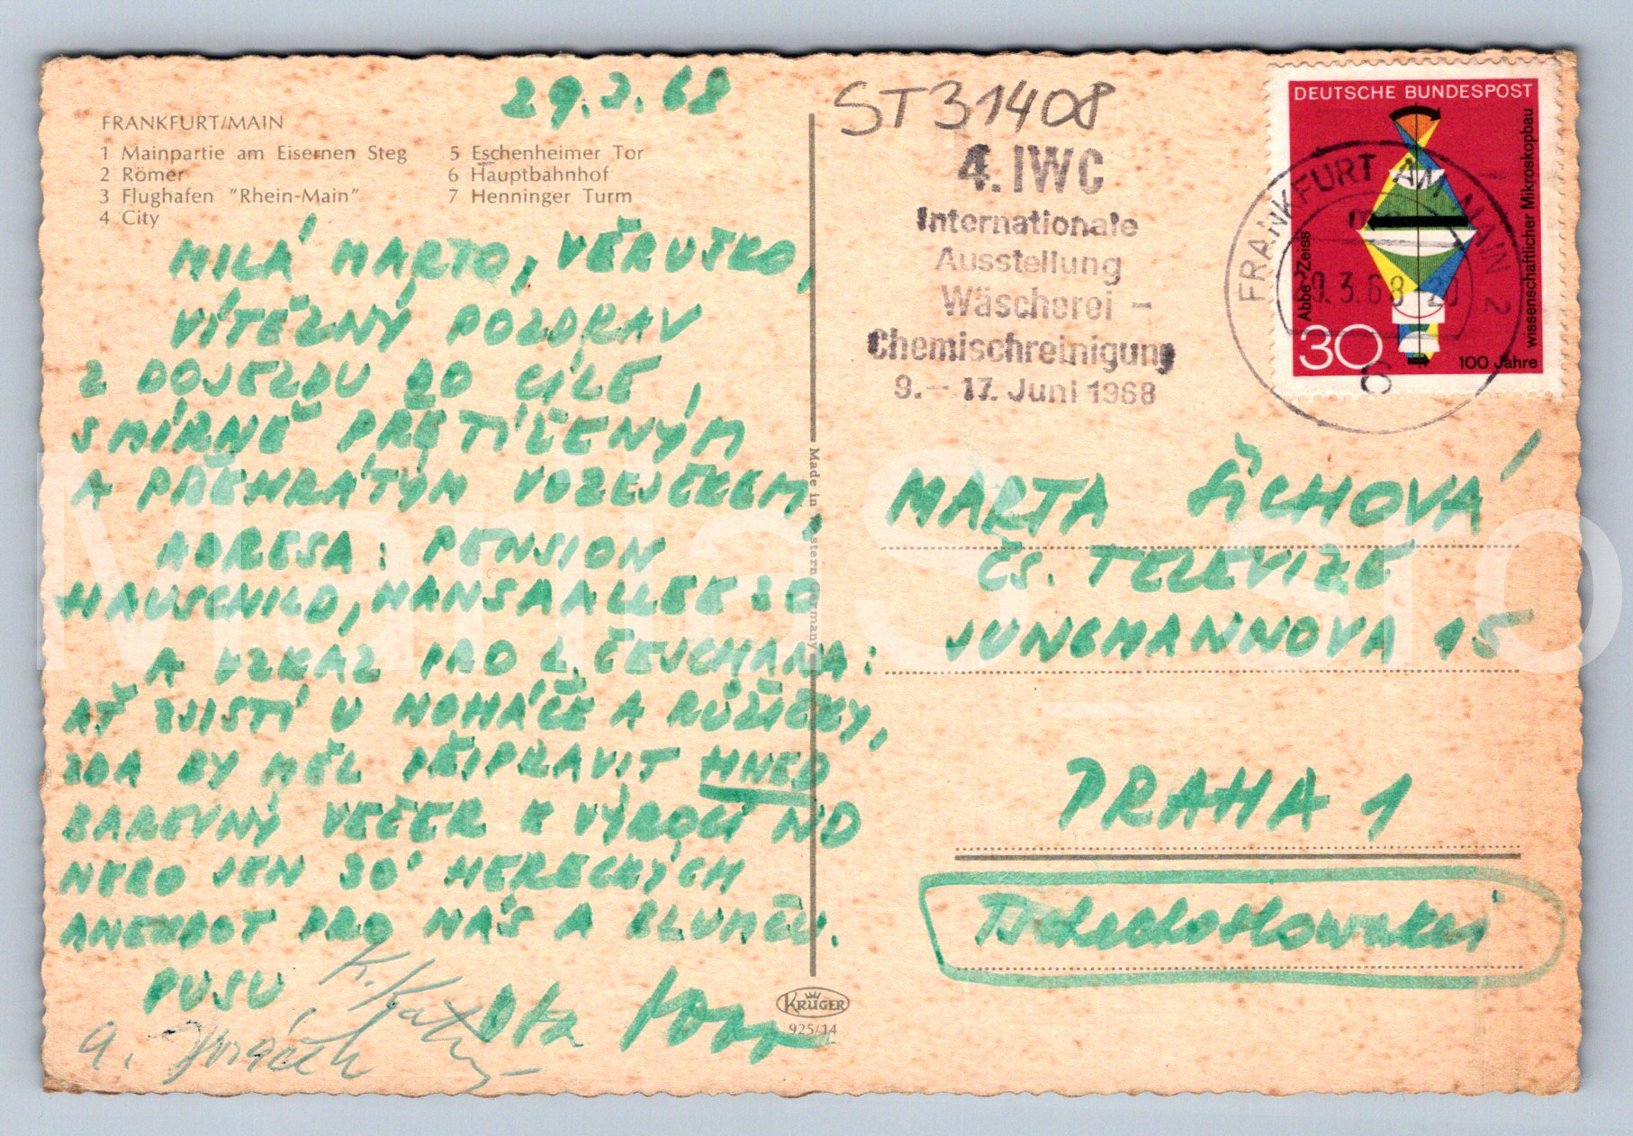 29.3.68
FRANKFURT/MAIN
1 Mainpartie am Eisernen Steg
2 Römer
3 Flughafen "Rhein-Main"
4 City
5 Eschenheimer Tor
6 Hauptbahnhof
7 Henninger Turm
MILÁ MARTO, VĚRUŠKO,
VÍTĚZNÝ POZDRAV
Z DOJEZDU DO CÍLE,
SMÍRNĚ PŘETÍŽENÝM
A PŘEHRÁTÝM VOZEJČKEM,
ADRESA: PENSION
HAUSCHILD, HANSAALLEE
A VZKAZ PRO L.
AŤ ZJISTÍ U NOHÁČE A RŮŽIČKY,
ZDA BY MĚL PŘIPRAVIT HNED
BAREVNÝ VEČER K VÝROČÍ ND
NEBO JEN 30' HERECKÝCH
ANEKDOT PRO NÁS A
PUSU
K.
A. Horáček
Ota
Made in Western Germany
KRÜGER
925/14
ST31408
4. IWC
Internationale
Ausstellung
Wäscherei –
Chemischreinigung
9. – 17. Juni 1968
DEUTSCHE BUNDESPOST
Abbe/Zeiss
wissenschaftlicher Mikroskopbau
30
100 Jahre
FRANKFURT AM MAIN 2
9.3.68-20
6
MARTA ŠÍCHOVÁ
ČS. TELEVIZE
JUNGMANNOVA 15
PRAHA 1
Tschechoslowakei